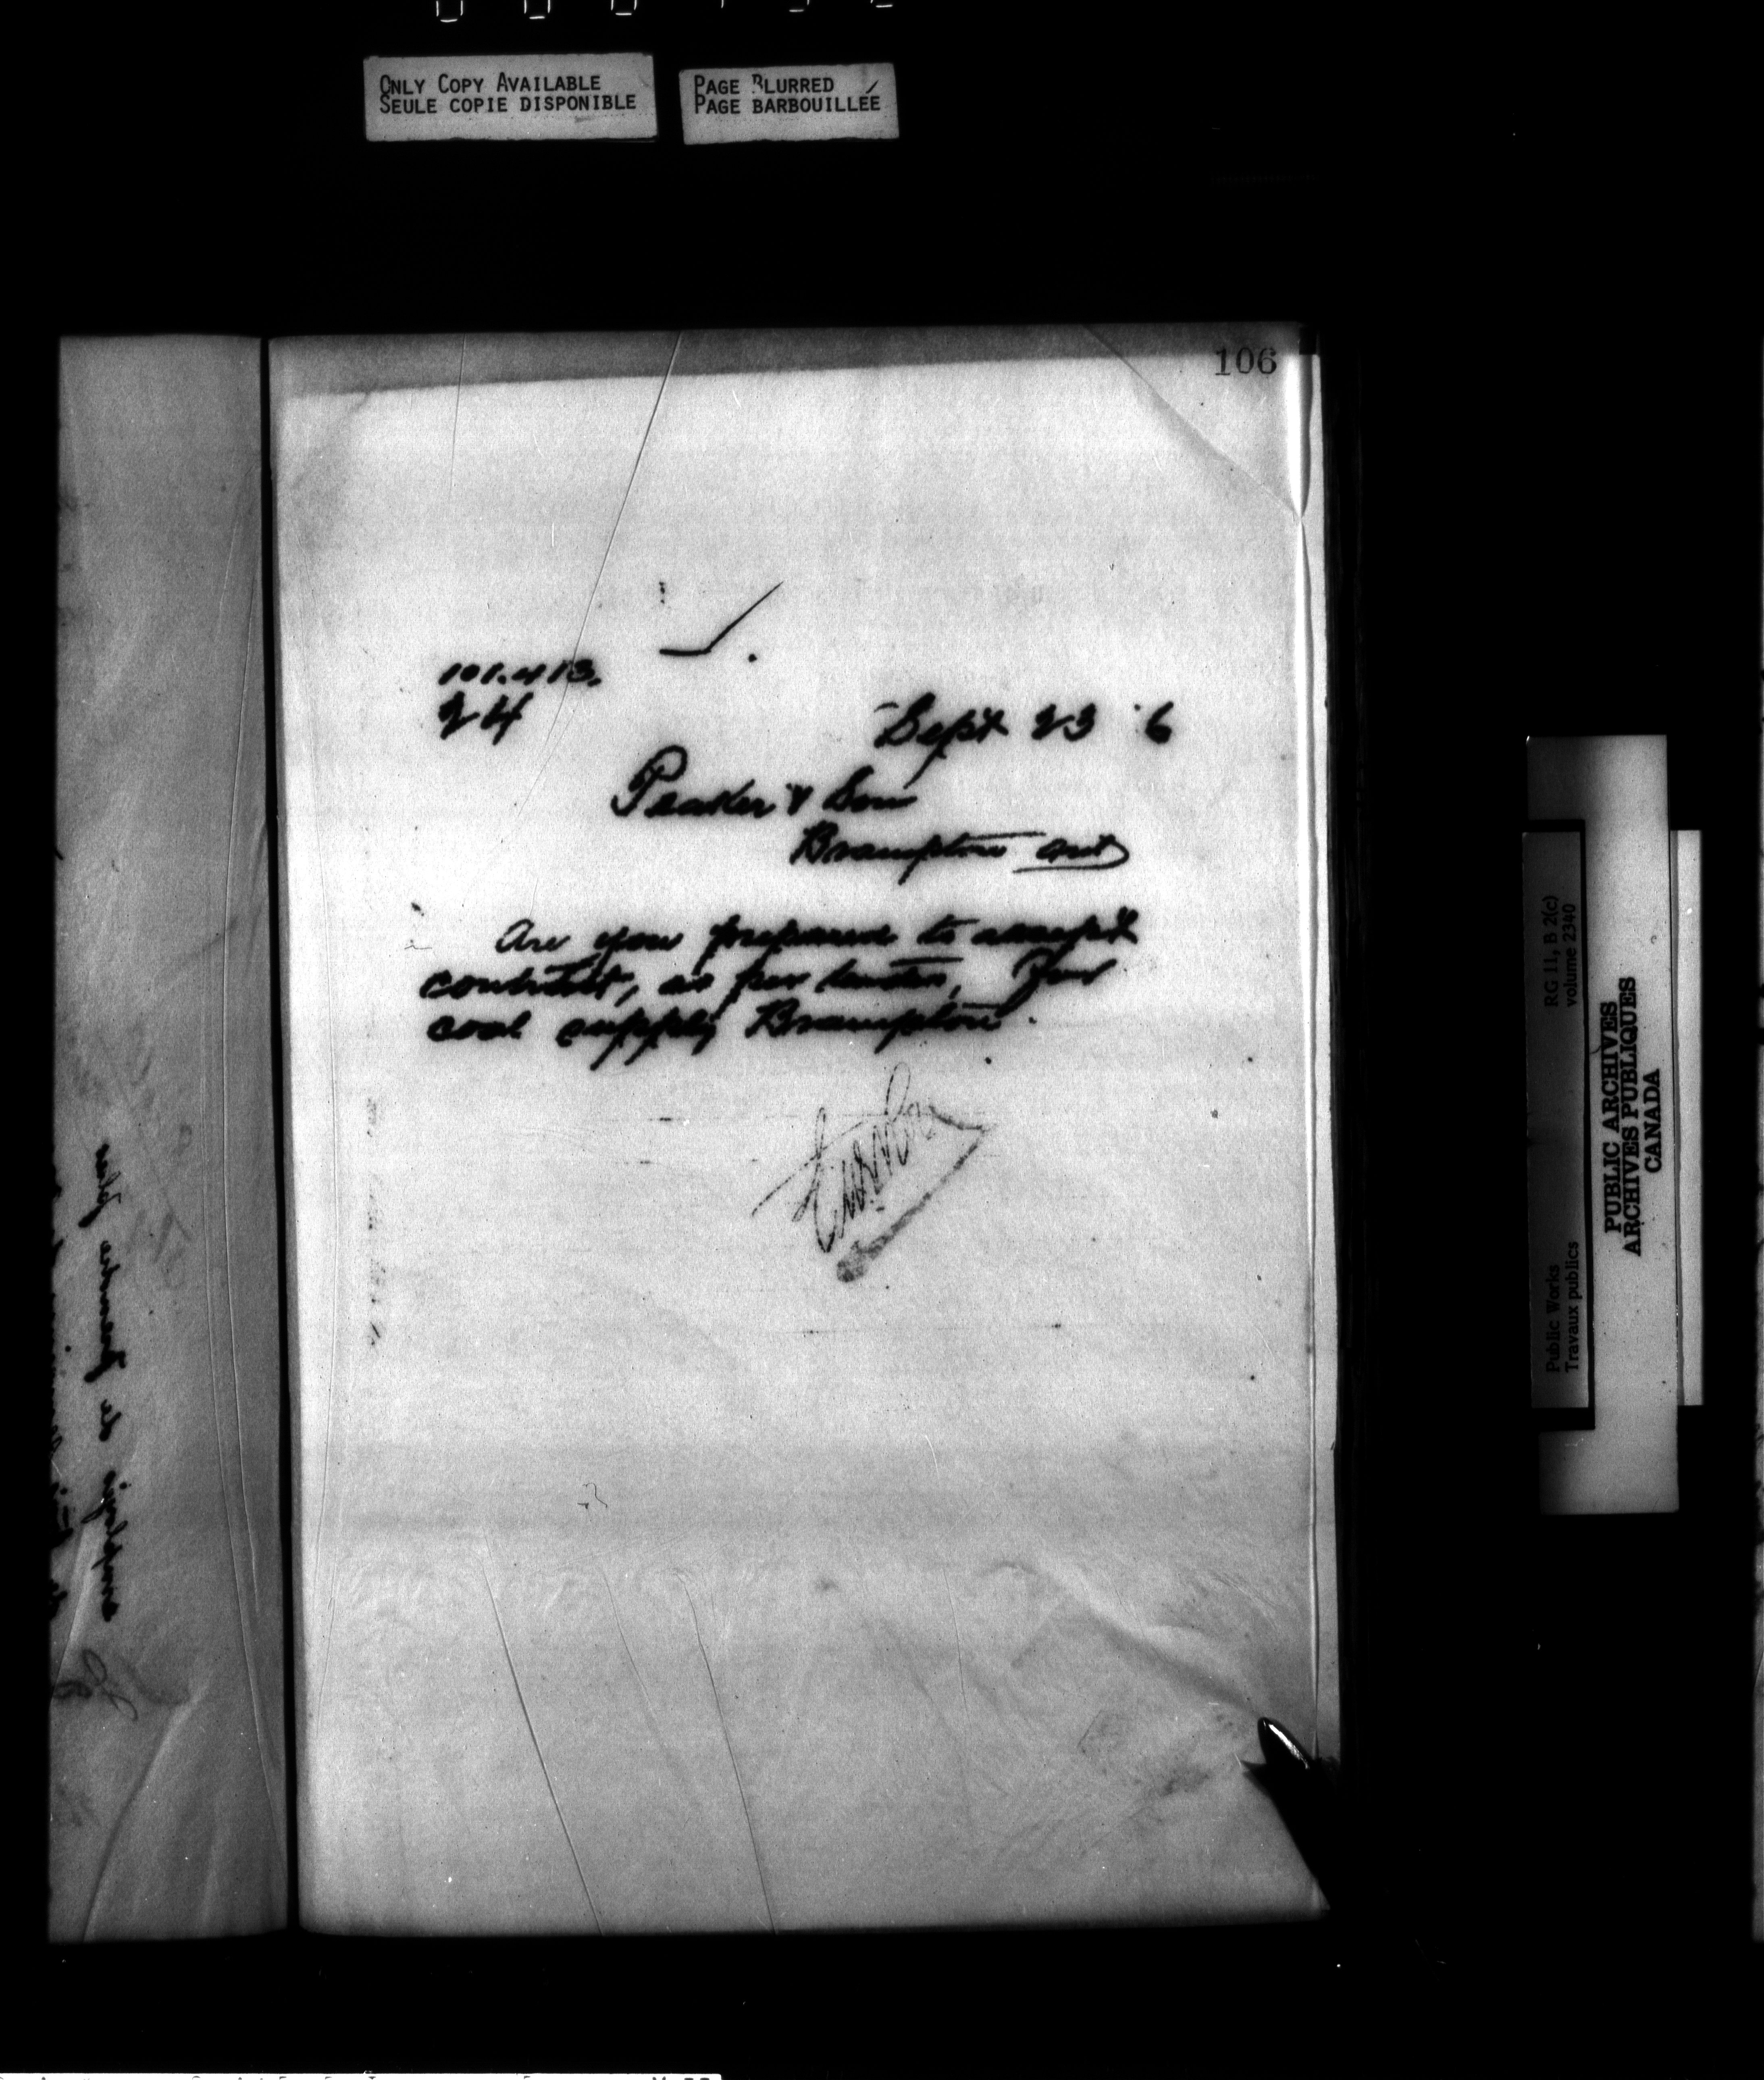 ONLY COPY AVAILABLE
SEULE COPIE DISPONIBLE
PAGE BLURRED
PAGE BARBOUILLÉE
106
101.413.
24
Sept 23 '6
Peaker & Son
Brampton Ont
Are you prepared to accept
contract, as per tender, for
coal supply Brampton.
RG 11, B 2(c)
volume 2340
Public Works
Travaux publics
PUBLIC ARCHIVES
ARCHIVES PUBLIQUES
CANADA